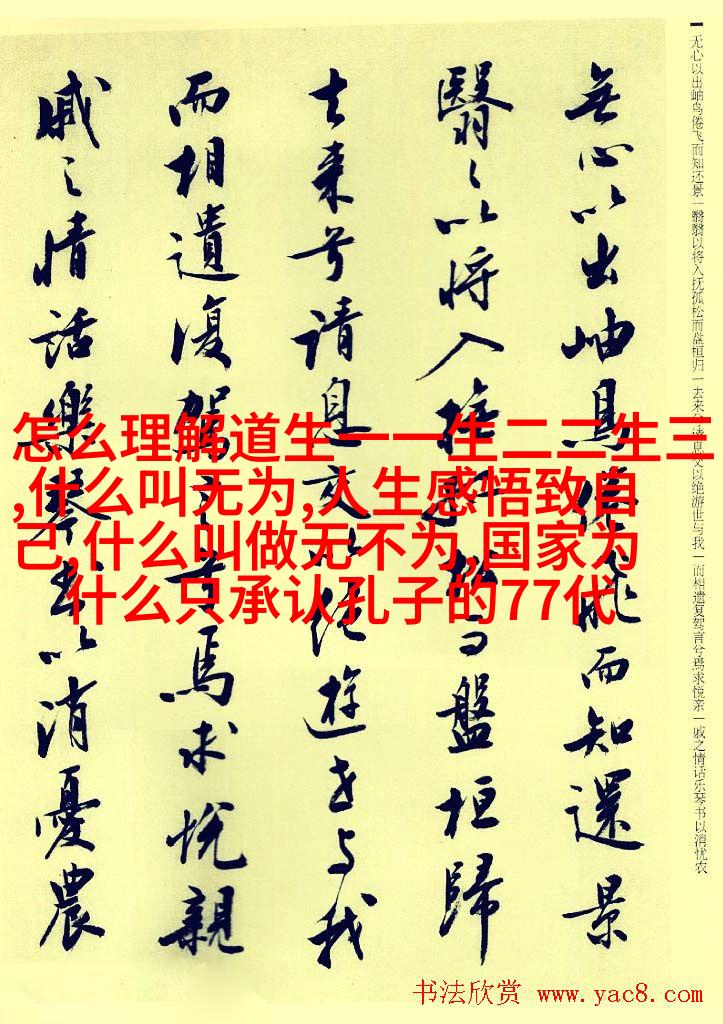 怎么理解道生一一生二二生三
,什么叫无为,人生感悟致自
己,什么叫做无不为,国家为
什么只承认孔子的77代
無心以出岫鳥倦飛而知還景
翳〻以將入撫孤松而盤桓歸
去来兮请息交以绝遊世与我
而相遺復駕言兮焉求悦親
戚之情話樂琴書以消憂農
无心以出岫鸟倦飞而知还景一翳翳以将入抚孤松而盘桓归一去来兮请息交以绝游世与我一而相遗复驾言兮焉求悦亲一戚之情话乐琴书以消忧农
书法欣赏 www.yac8.com